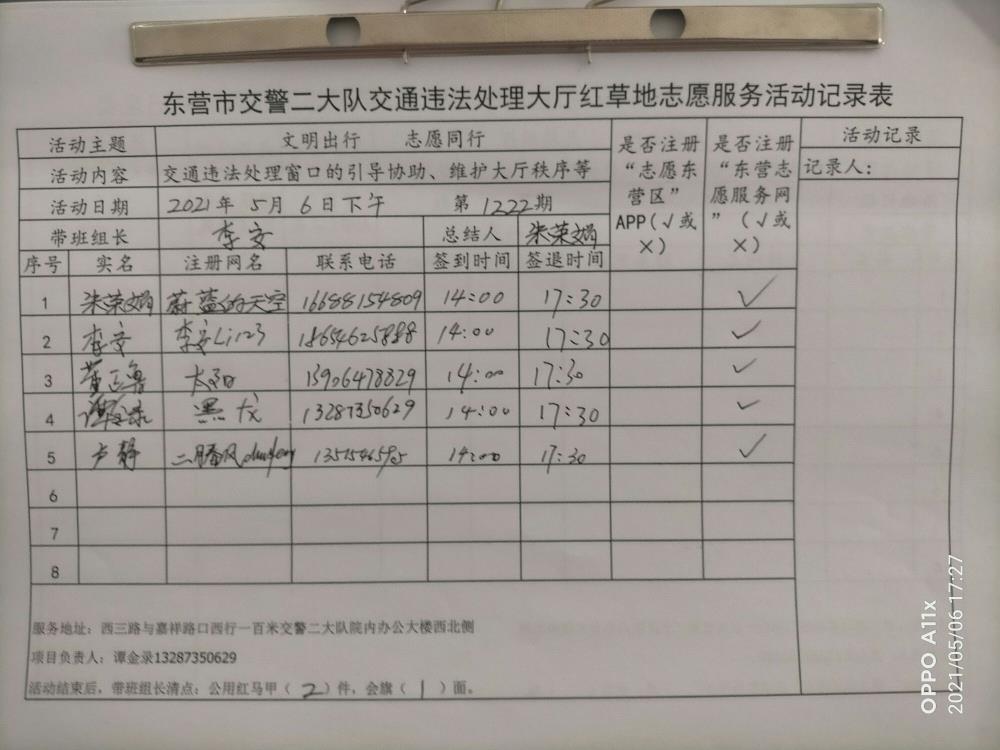 东营市交警二大队交通违法处理大厅红草地志愿服务活动记录表
活动主题 文明出行 志愿同行 是否注册“志愿东营区”APP(√或×) 是否注册“东营志愿服务网”(√或×) 活动记录
活动内容 交通违法处理窗口的引导协助、维护大厅秩序等 记录人:
活动日期 2021年 5月 6日下午 第 1222期
带班组长 李安 总结人 朱荣娟
序号 实名 注册网名 联系电话 签到时间 签退时间
1 朱荣娟 蔚蓝的天空 16688154809 14:00 17:30 ✓
2 李安 李安Li123 18654625888 14:00 17:30 ✓
3 太阳 13906478829 14:00 17:30 ✓
4 谭金录 黑龙 13287350629 14:00 17:30 ✓
5 卢静 二腾风 14:00 17:30 ✓
6
7
8
服务地址：西三路与嘉祥路口西行一百米交警二大队院内办公大楼西北侧
项目负责人：谭金录13287350629
活动结束后，带班组长清点：公用红马甲（ 2 ）件，会旗（ 1 ）面。
OPPO A11x
2021/05/06 17:27